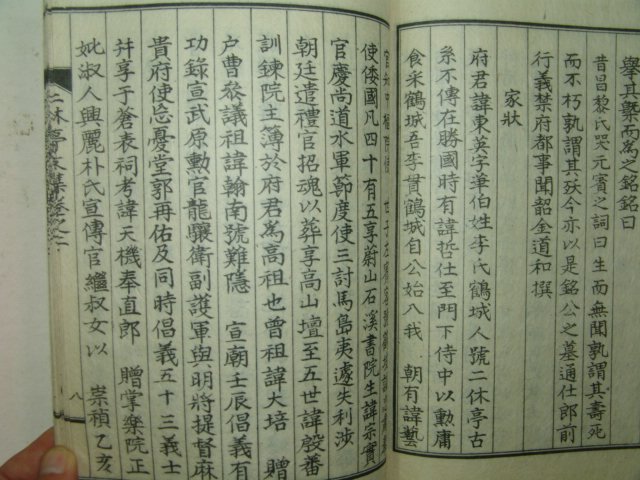 舉其槩而爲之銘銘曰
昔昌黎氏哭元賓之詞曰生而無聞孰謂其壽死
而不朽孰謂其殀今亦以是銘公之墓通仕郞前
行義禁府都事聞韶金道和撰
家狀
府君諱東英字華伯姓李氏鶴城人號二休亭古
系不傳在勝國時有諱哲仕至門下侍中以勳庸
食采鶴城吾李貫鶴城自公始入我 朝有諱藝
使倭國凡四十有五享蔚山石溪書院生諱宗實
官慶尙道水軍節度使三討馬島夷遽失利涉
朝廷遣禮官招魂以葬享高山壇至五世諱殷蕃
訓鍊院主簿於府君爲高祖也曾祖諱大培 贈
户曹叅議祖諱翰南號難隱 宣廟壬辰倡義有
功錄宣武原勳官龍驤衛副護軍與明將提督麻
貴府使忘憂堂郭再佑及同時倡義五十三義士
幷享于蒼表祠考諱天機奉直郞 贈掌樂院正
妣淑人興麗朴氏宣傳官繼叔女以 崇禎乙亥
二休亭文集卷之二
八